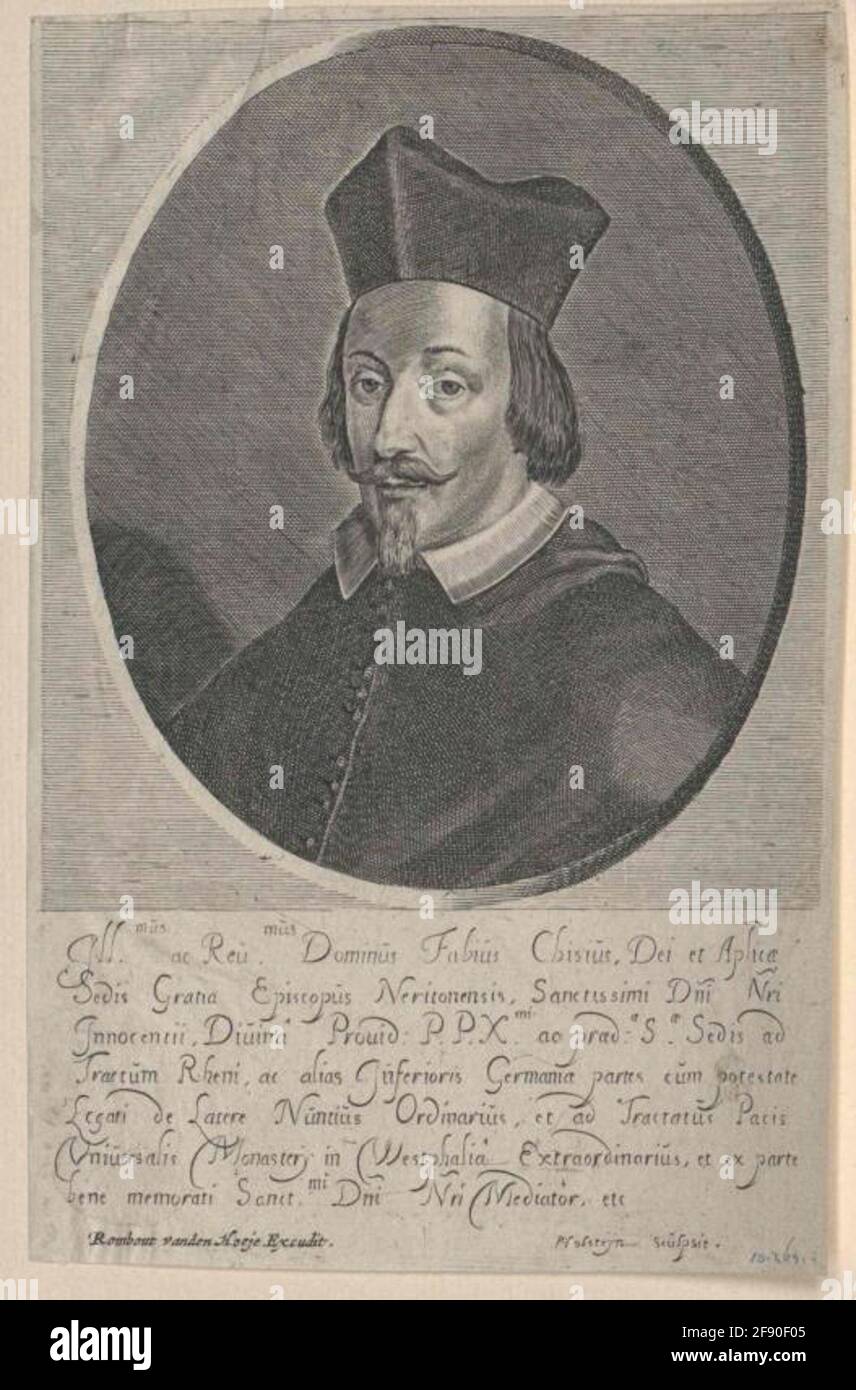 Ill.mūs ac Reū.mūs Dominūs Fabiūs Chisiūs, Dei et Aplicæ
Sedis Gratia Episcopūs Neritonensis, Sanctissimi Dñi Nri
Innocentii, Diūina Prouid: P.P.X.mi ac præd.a S.æ Sedis ad
Tractūm Rheni, ac alias Inferioris Germaniæ partes cūm potestate
Legati de Latere Nūntiūs Ordinariūs, et ad Tractatūs Pacis
Vniūersalis Monasterij in Westphalia Extraordinariūs, et ex parte
bene memorati Sanct.mi Dñi Nri Mediator, etc
Rombout vanden Hoeje Excudit.
PHolsteyn Sculpsit.
alamy
alamy
Image ID: 2F90F05
www.alamy.com